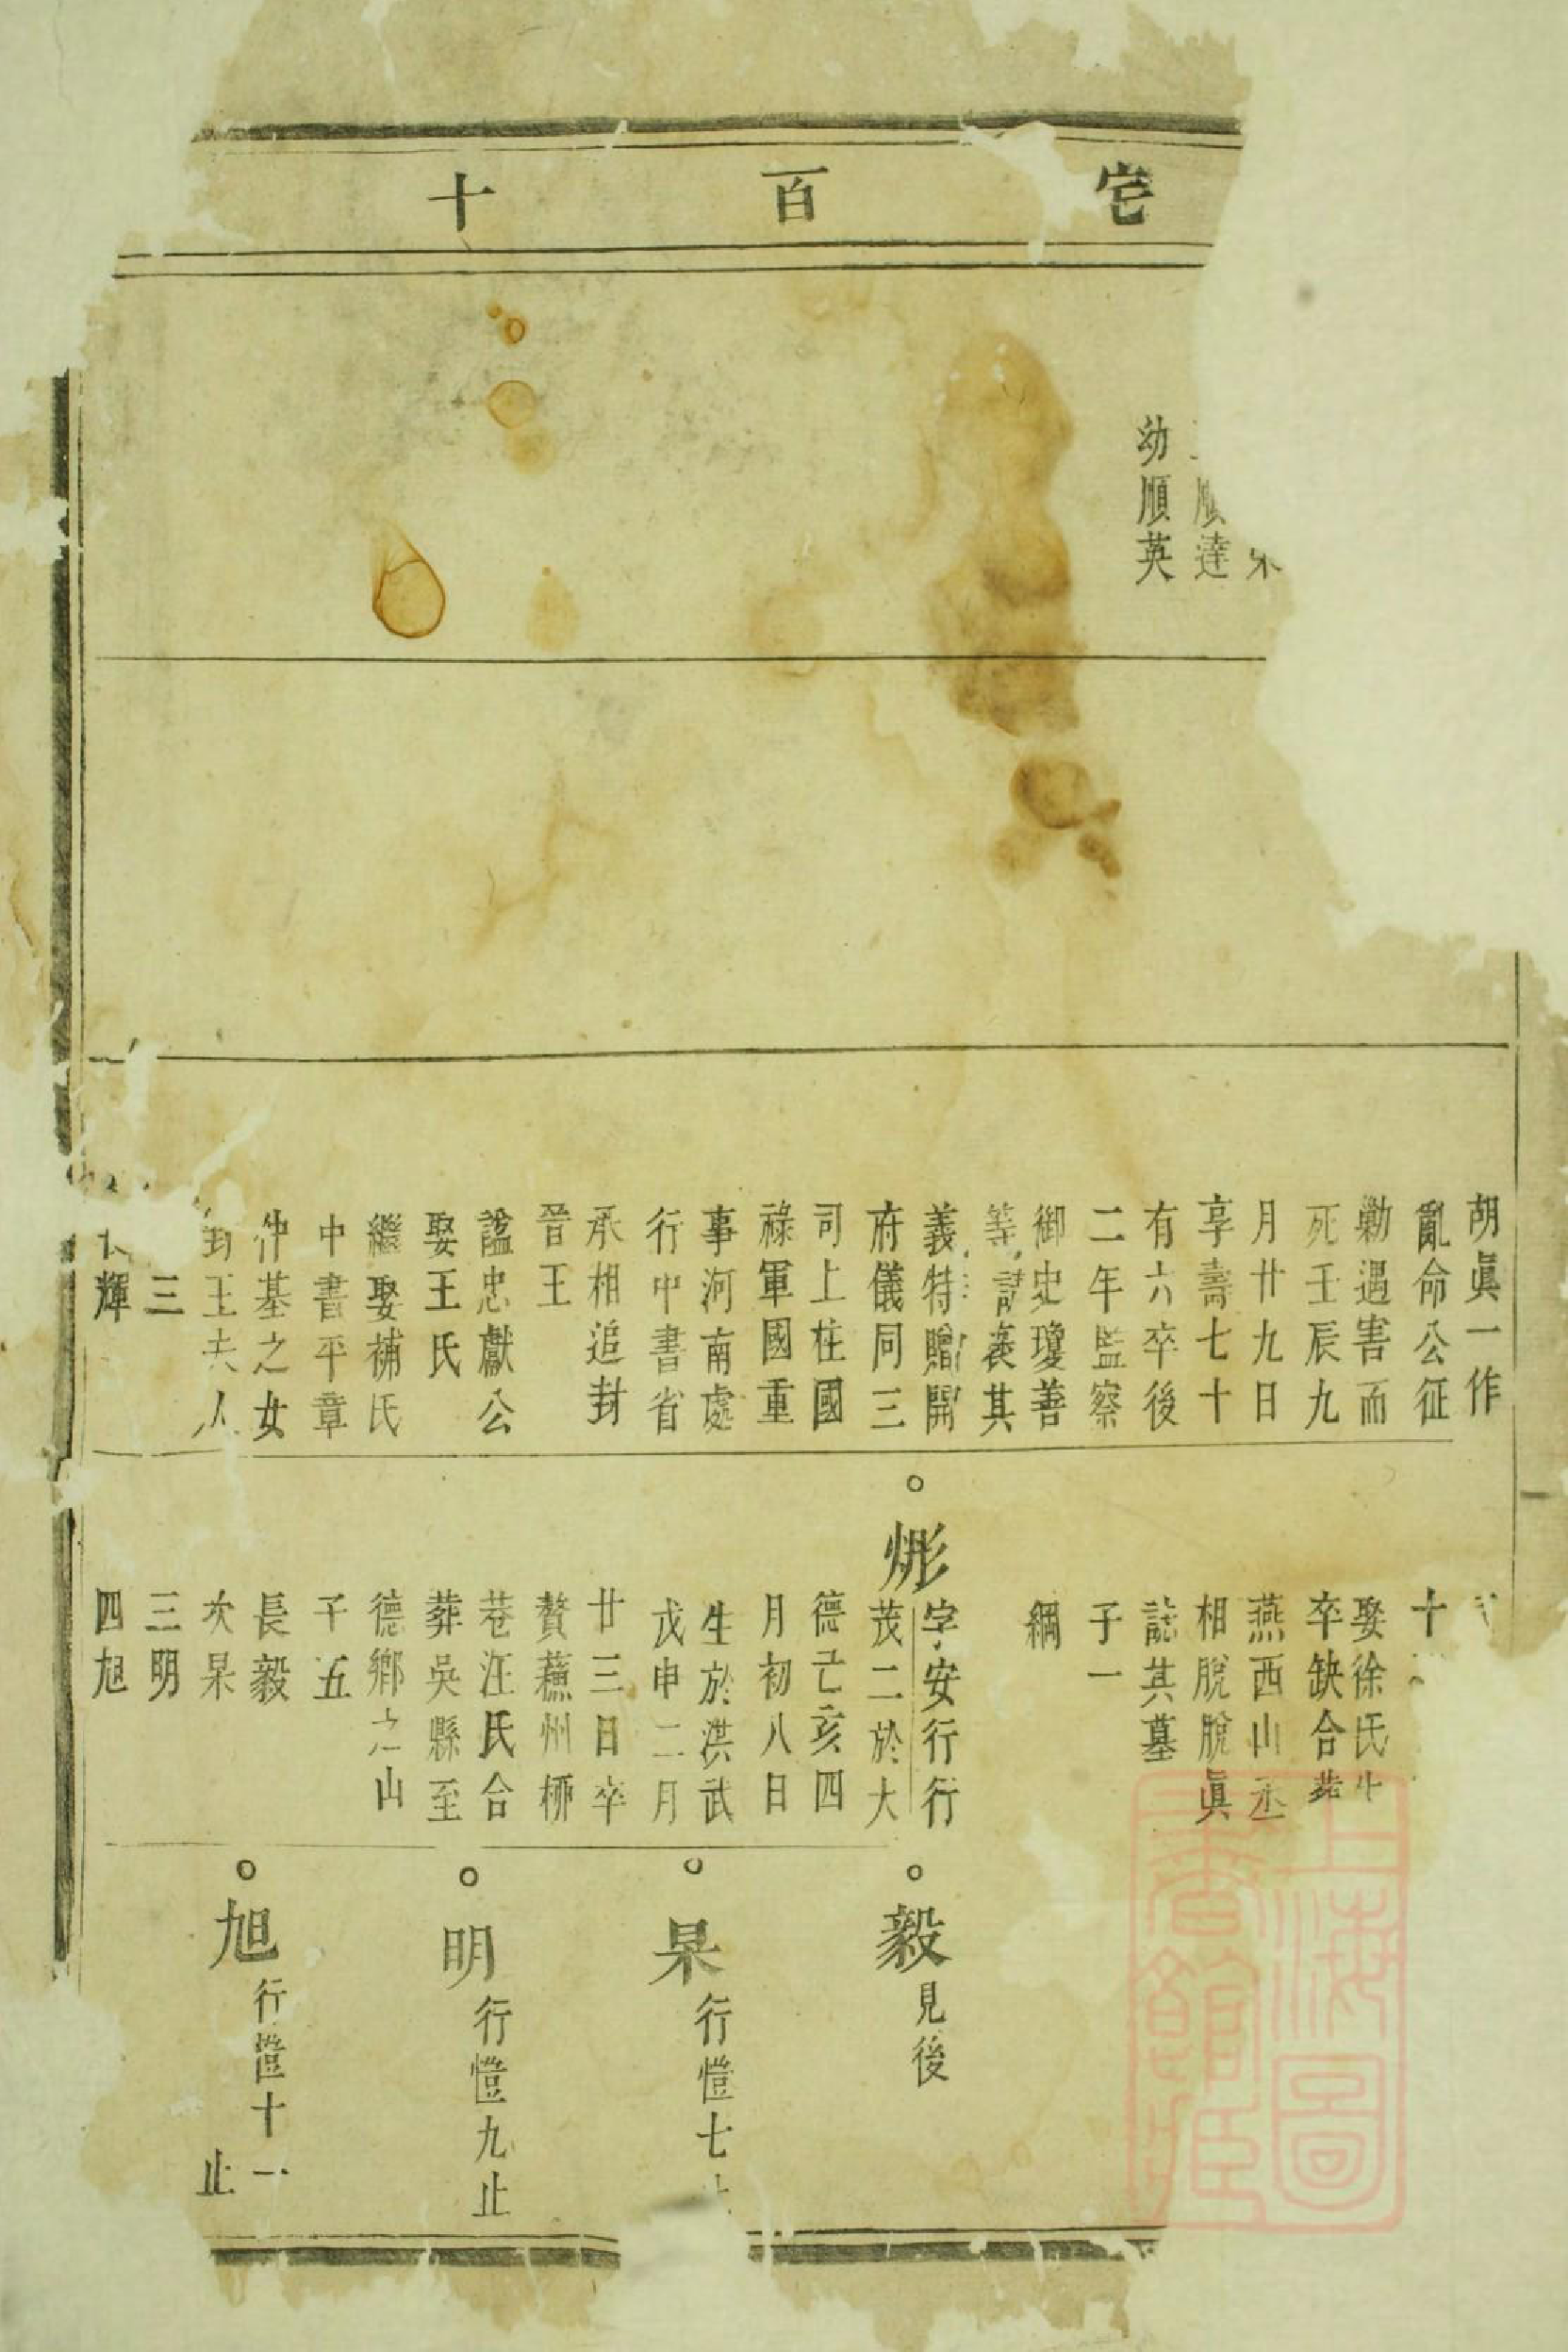 宅百十
順達
幼順英
胡眞一作
亂命公征
勦遇害而
死壬辰九
月廿九日
享壽七十
有六卒後
二年監察
御史瓊善
等請襃其
義特贈開
府儀同三
司上柱國
祿軍國重
事河南處
行中書省
承相追封
晉王
諡忠獻公
娶王氏
繼娶補氏
中書平章
仲基之女
封王夫人
三
輝
十
娶徐氏
卒缺合葬
燕西山丞
相脫脫眞
誌其墓
子一
綱
字安行行
茂二於大
德乙亥四
月初八日
生於洪武
戊申二月
廿三日卒
贅蘓州栁
巷汪氏合
葬吳縣至
德鄉之山
子五
長毅
次杲
三明
四旭
毅見後
杲行愷七
明行愷九止
旭行愷十一
止
上海圖
書館